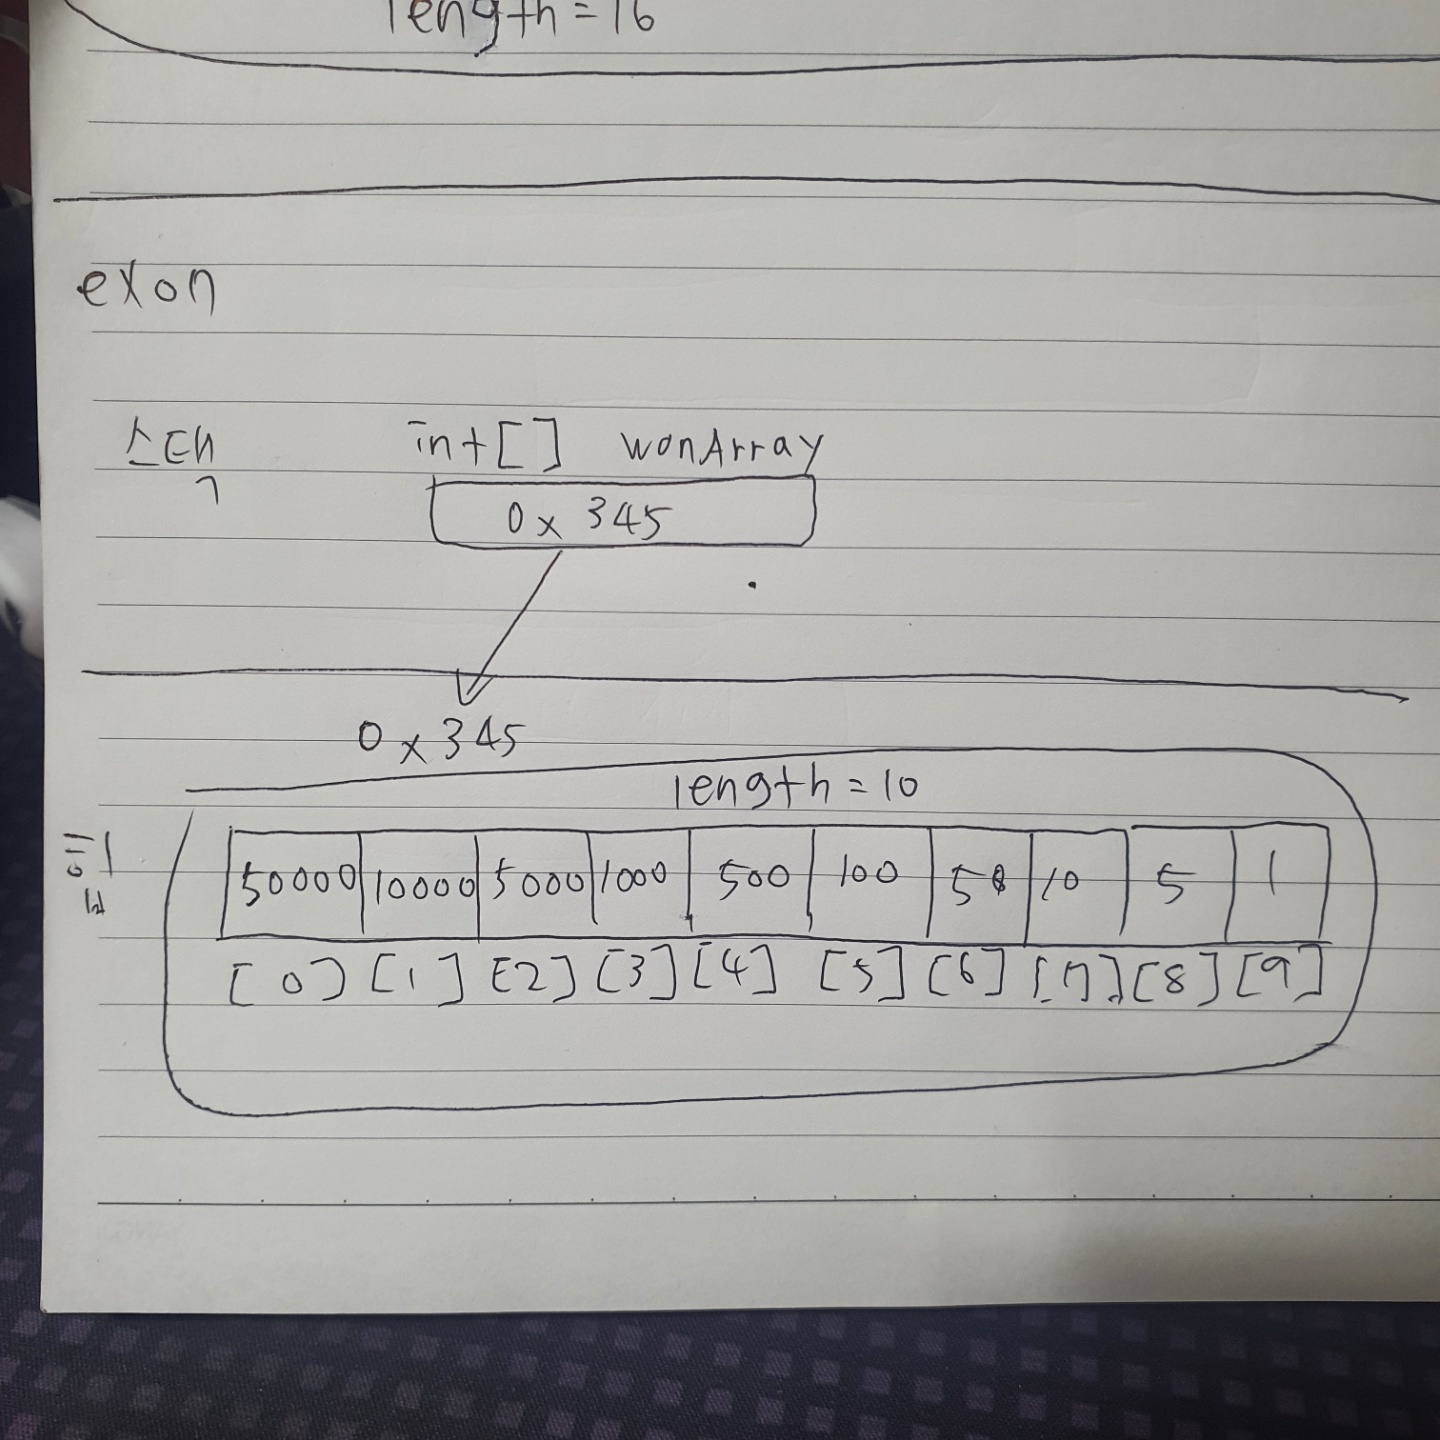 length = 16
exon
스택
int[] wonArray
0x345
0x345
length = 10
힙
50000 10000 5000 1000 500 100 50 10 5 1
[0] [1] [2] [3] [4] [5] [6] [7] [8] [9]